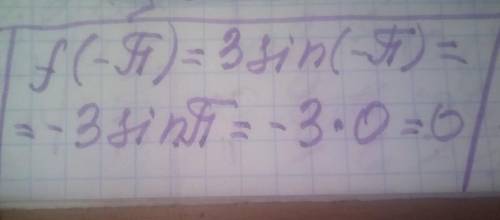 f(-π) = 3 sin(-π) =
= -3 sin π = -3 · 0 = 0